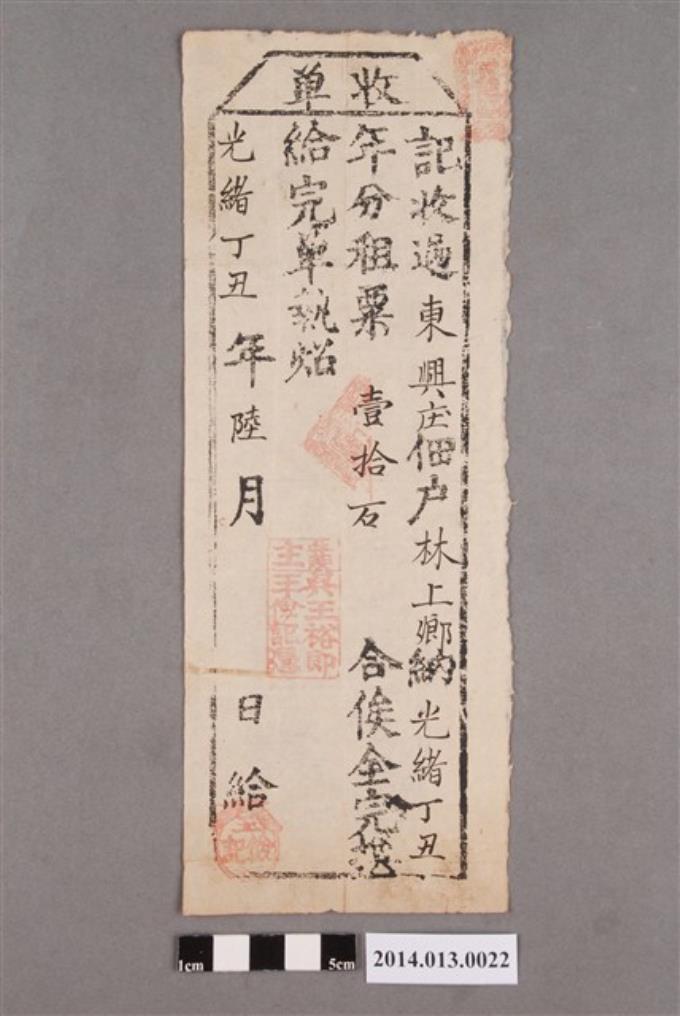 收單
記收過東興庄佃户林上鄉納光緒丁丑
年分租粟壹拾石 合俟全完換
給完單執炤
光緒丁丑年陸月 日給
1cm 5cm
2014.013.0022